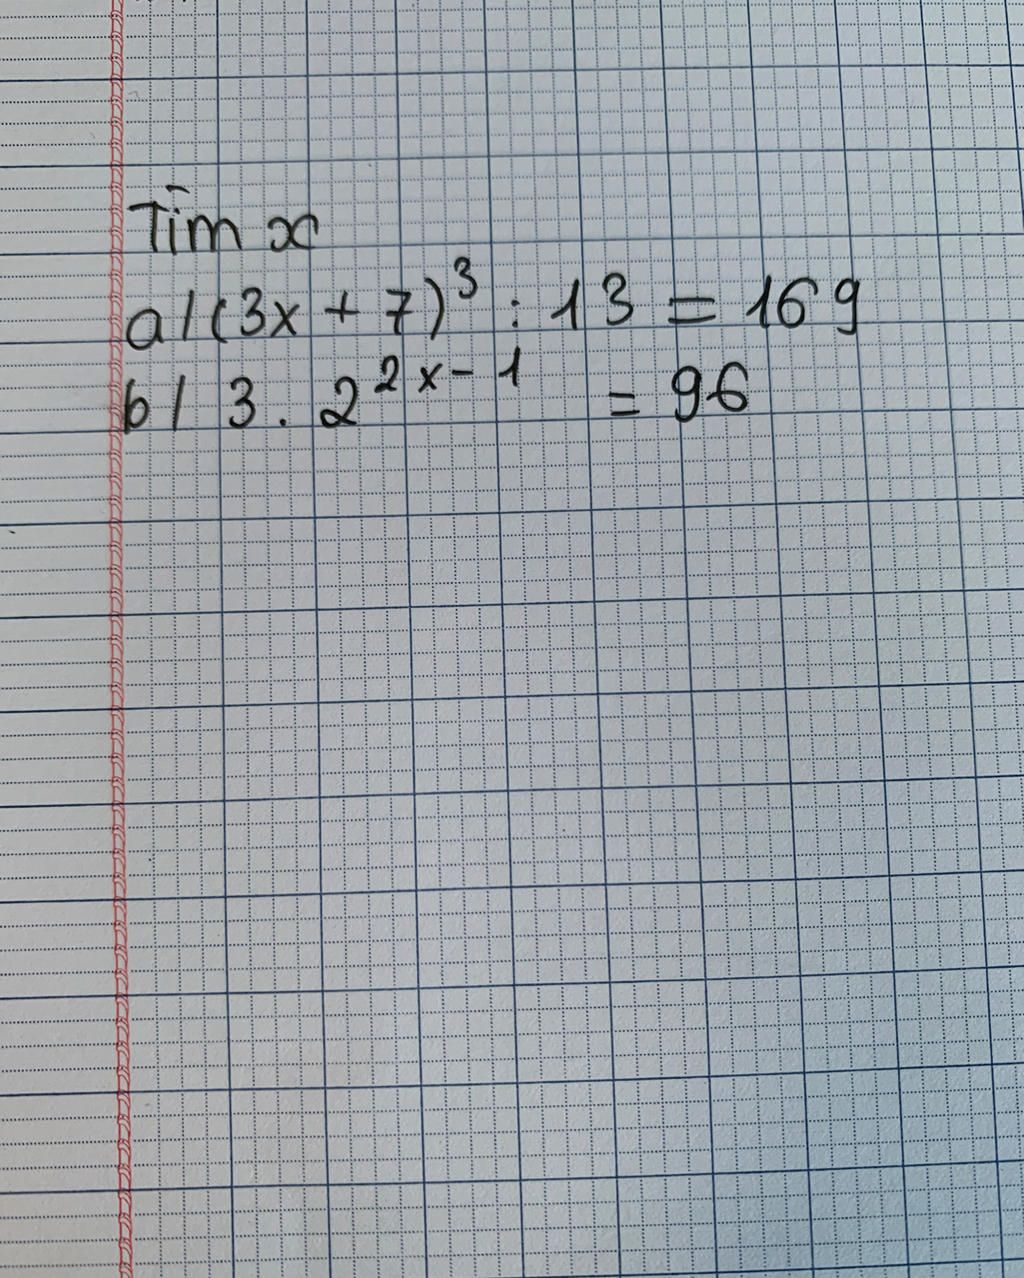 Tìm x
a/(3x + 7)³ : 13 = 169
b/ 3 . 2^{2x-1} = 96